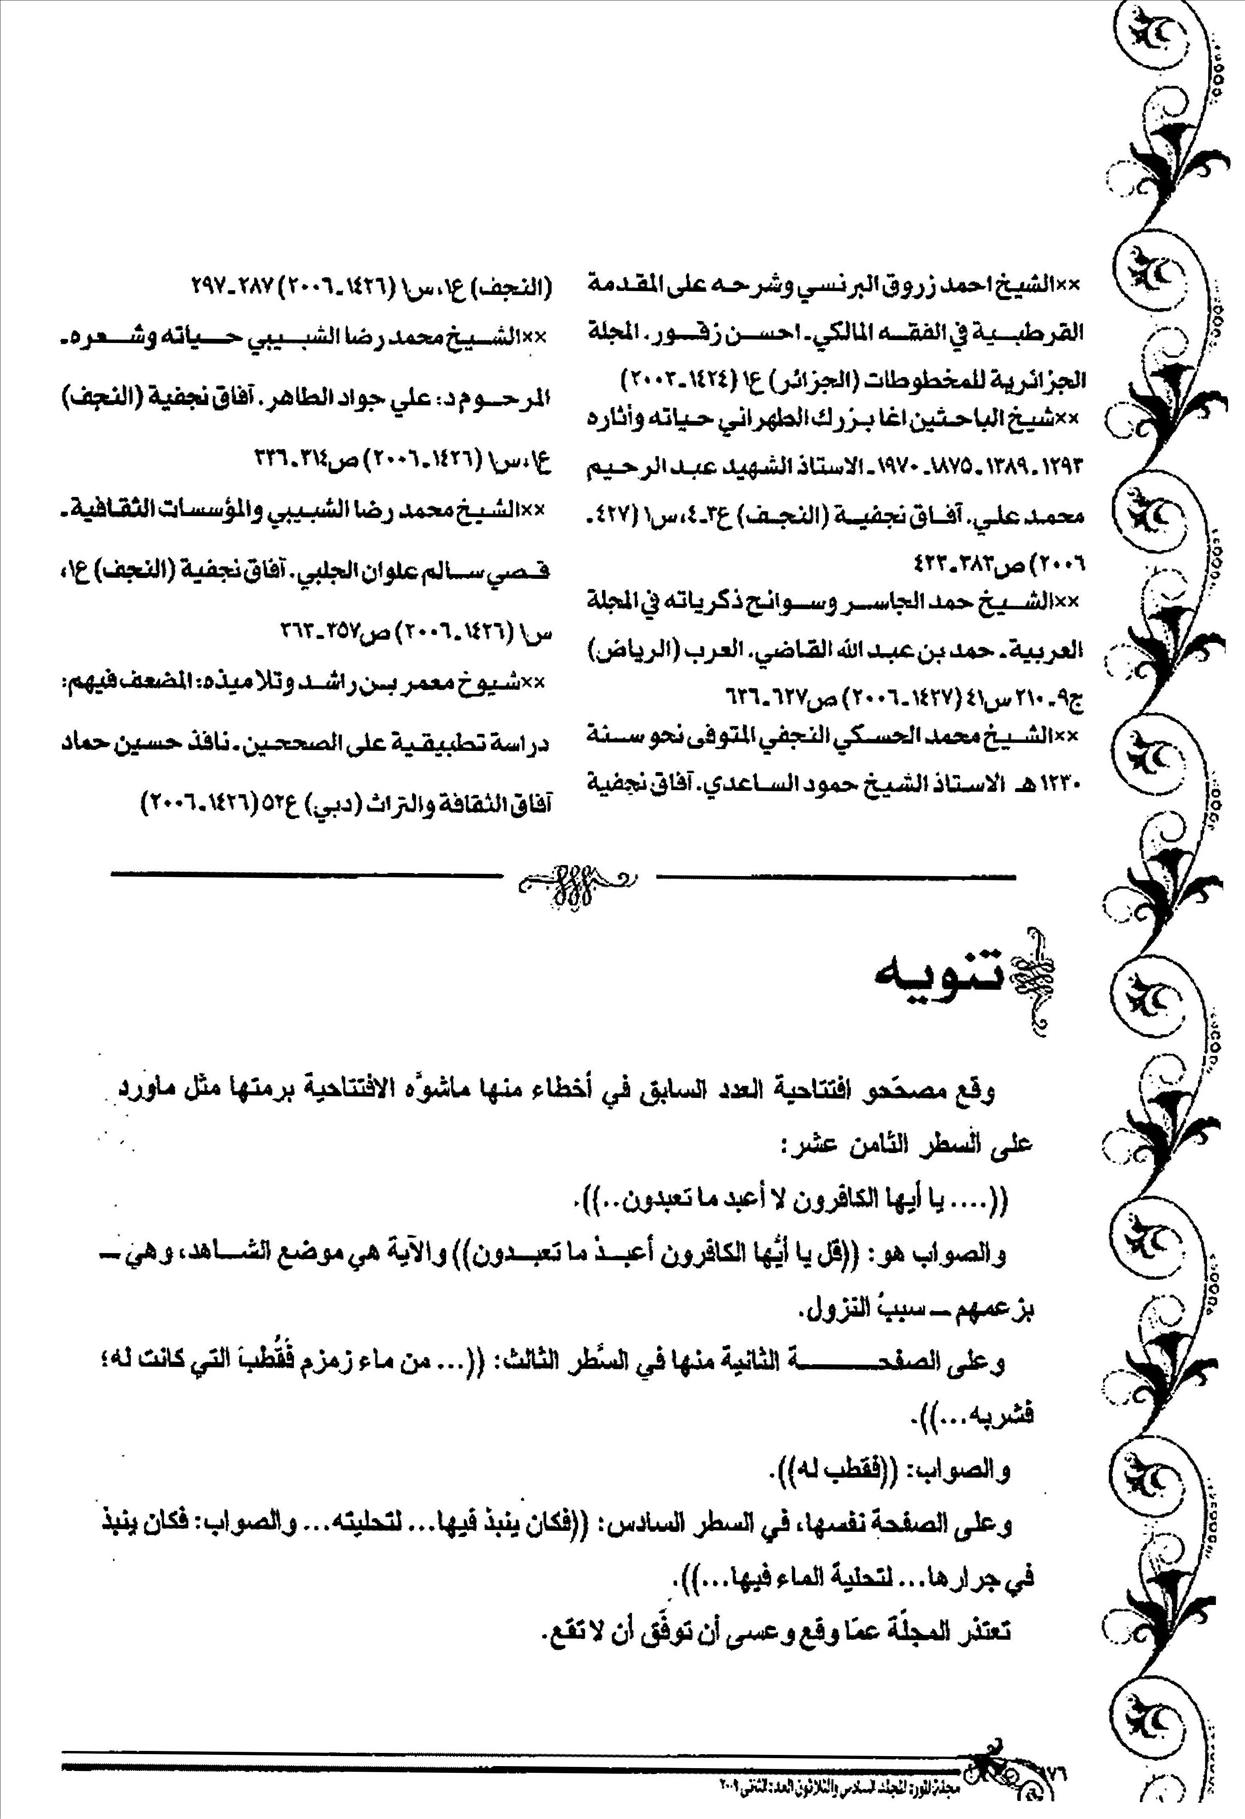 ××الشيخ احمد زروق البرنسي وشرحه على المقدمة
القرطبية في الفقه المالكي. احسن زقور. المجلة
الجزائرية للمخطوطات (الجزائر) ع١ (١٤٢٤ـ٢٠٠٣)
××شيخ الباحثين اغا بزرك الطهراني حياته وأثاره
١٢٩٣ـ١٣٨٩ـ١٨٧٥ـ١٩٧٠ـ الاستاذ الشهيد عبد الرحيم
محمد علي. آفاق نجفية (النجف) ع٣ـ٤، س١ (٤٢٧ـ
٢٠٠٦) ص٣٨٣ـ٤٢٣
××الشيخ حمد الجاسر وسوانح ذكرياته في المجلة
العربية. حمد بن عبد الله القاضي. العرب (الرياض)
ج٩ـ٢١٠ س٤١ (١٤٢٧ـ٢٠٠٦) ص٦٢٧ـ٦٣٦
××الشيخ محمد الحسكي النجفي المتوفى نحو سنة
١٢٣٠هـ الاستاذ الشيخ حمود الساعدي. آفاق نجفية
(النجف) ع١، س١ (١٤٢٦ـ٢٠٠٦) ٢٨٧ـ٢٩٧
××الشيخ محمد رضا الشبيبي حياته وشعره.
المرحوم د: علي جواد الطاهر. آفاق نجفية (النجف)
ع١، س١ (١٤٢٦ـ٢٠٠٦) ص٣١٤ـ٣٣٦
××الشيخ محمد رضا الشبيبي والمؤسسات الثقافية.
قصي سالم علوان الجلبي. آفاق نجفية (النجف) ع١،
س١ (١٤٢٦ـ٢٠٠٦) ص٣٥٧ـ٣٦٣
××شيوخ معمر بن راشد وتلاميذه: المضعف فيهم:
دراسة تطبيقية على الصححين. نافذ حسين حماد
آفاق الثقافة والتراث (دبي) ع٥٢ (١٤٢٦ـ٢٠٠٦)
تنويه
وقع مصحّحو افتتاحية العدد السابق في أخطاء منها ماشوّه الافتتاحية برمتها مثل ماورد
على السطر الثامن عشر:
((.... يا أيها الكافرون لا أعبد ما تعبدون..)).
والصواب هو: ((قل يا أيُّها الكافرون أعبدُ ما تعبدون)) والآية هي موضع الشاهد، وهي ـ
بزعمهم ـ سببُ النزول.
وعلى الصفحة الثانية منها في السَّطر الثالث: ((... من ماء زمزم فَقُطبَ التي كانت له؛
فشربه...)).
والصواب: ((فقطب له)).
وعلى الصفحة نفسها، في السطر السادس: ((فكان ينبذ فيها... لتحليته... والصواب: فكان ينبذ
في جرارها... لتحلية الماء فيها...)).
تعتذر المجلّة عمّا وقع وعسى أن توفّق أن لا تقع.
١٧٦
مجلة المورد المجلد السادس والثلاثون العدد الثاني ٢٠٠٩